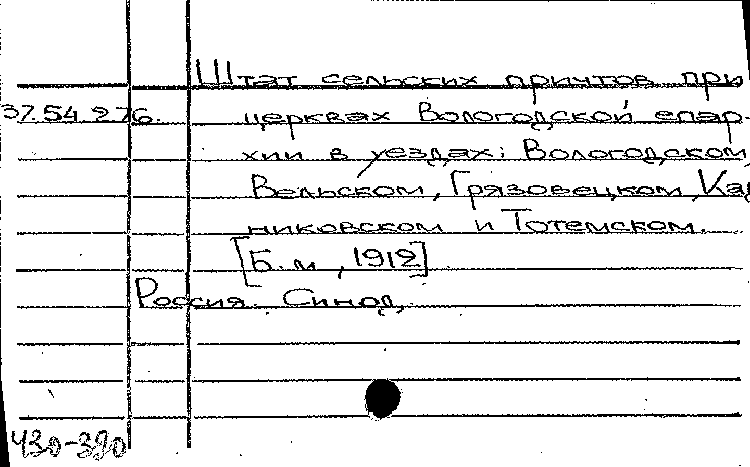 Штат сельских причтов при
37.54.276. церквах Вологодской епар-
хии в уездах: Вологодском,
Вельском, Грязовецком, Кад
никовском и Тотемском.
[Б.м, 1912]
Россия. Синод.
430-390